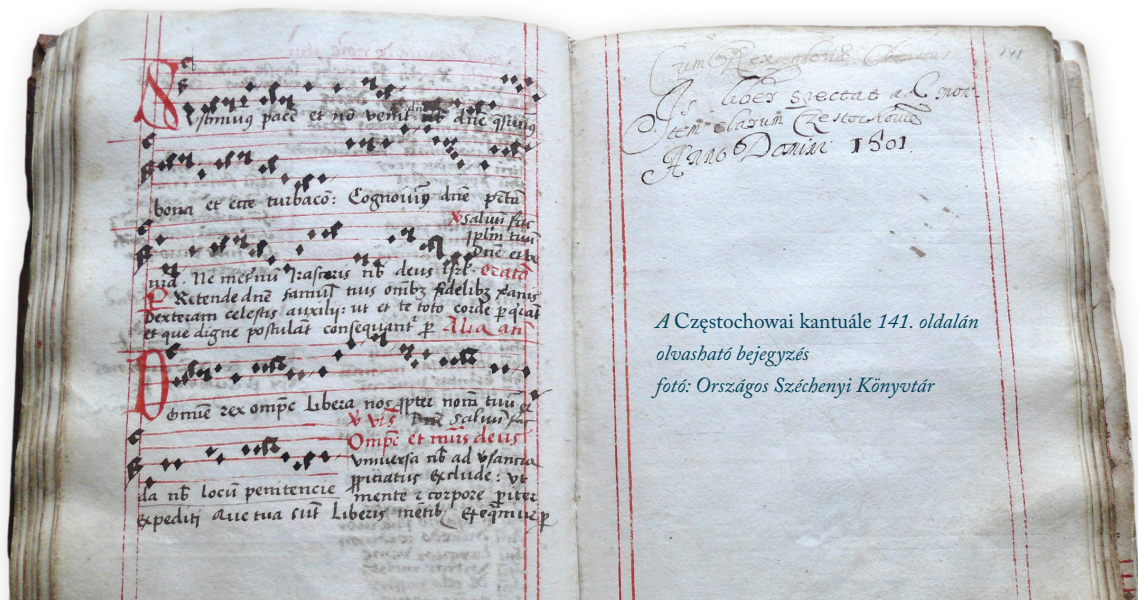 Sustinuimus pacē et nō venit dn̄e q̄siuimus
bona et ecce turbacō: Cognouim9 dn̄e pctā
℣ Saluū fac
pplm̄ tuū
Dn̄e et be
nrā. Ne in etnū Irascaris nb̄ deus Isrl̄. oratō
PRetende dn̄e famul tuis omībꝫ fidelibꝫ
Dexteram celestis auxilij: ut et te toto corde pq̄rāt
et que digne postulāt consequant p̄ Alia añ
Domine rex omp̄c Libera nos ppter nom̄ tuū et
℣ Dn̄e Saluū fac
Omp̄c et miīs deus
da nb̄ locū penitencie
vniuersa nb̄ adūsancia
ppitiatus exclude: vt
mente ⁊ corpore pit̄er
Expediti Que tua sūt Liberis mētib exeq̄mur p̄
Cum Rex glorie Christus
141
Is liber spectat ad mon
tem clarum Czestochouiē
Anno Domini 1501
A Częstochowai kantuále 141. oldalán
olvasható bejegyzés
fotó: Országos Széchényi Könyvtár